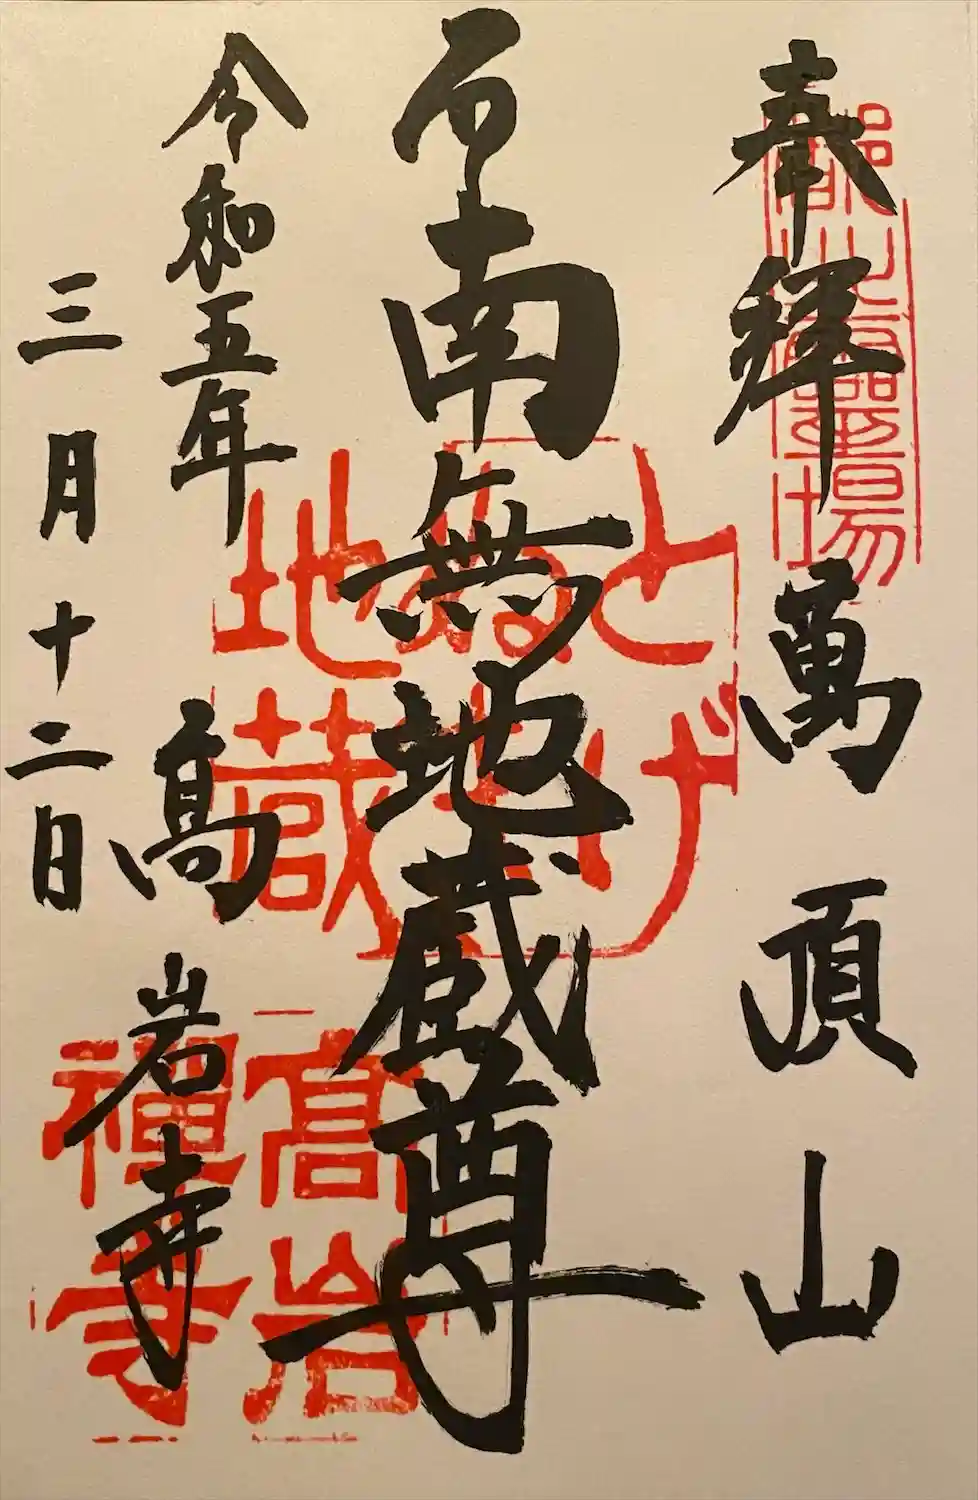 奉拝 萬頂山
南無地蔵尊
髙岩寺
令和五年
三月十二日
霊場
とげぬき
地蔵
髙岩
禅寺